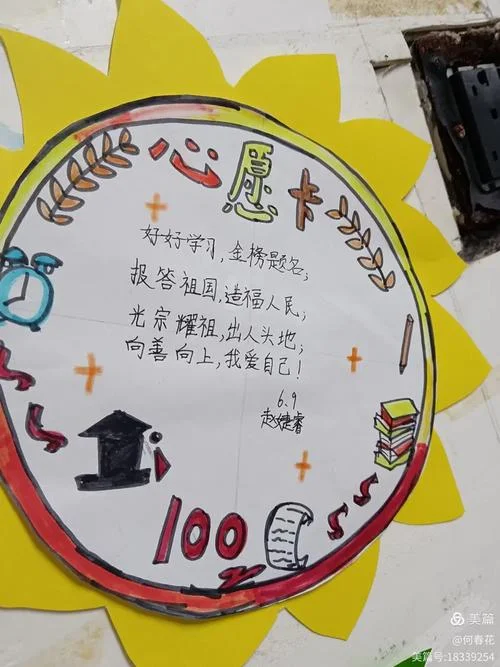 心愿卡
好好学习,金榜题名;
报答祖国,造福人民;
光宗耀祖,出人头地;
向善向上,我爱自己!
6.9
赵婕睿
100
美篇
@何春花
美篇号:18339254